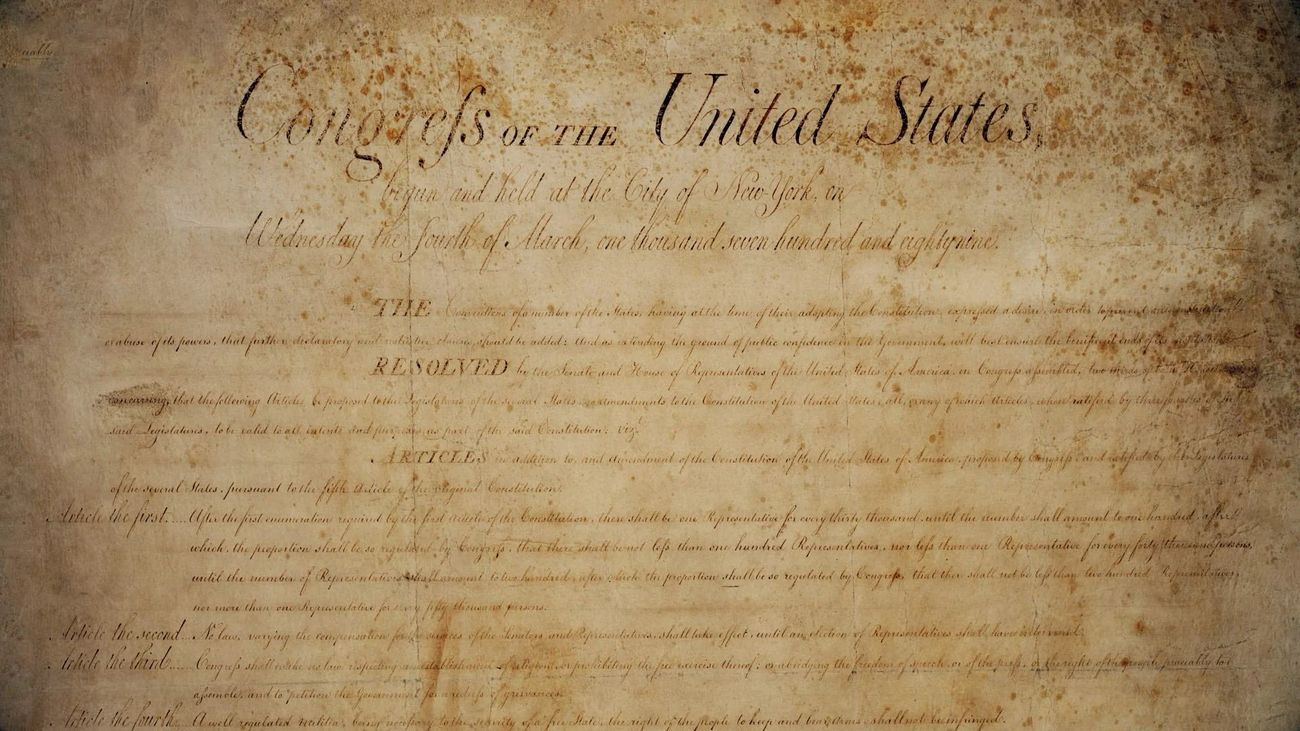 Congreſs OF THE United States,
begun and held at the City of New-York, on
Wednesday the fourth of March, one thousand seven hundred and eighty nine.
THE Conventions of a number of the States, having at the time of their adopting the Constitution, expreſsed a desire, in order to prevent misconstruction
or abuse of its powers, that further declaratory and restrictive clauses should be added: And as extending the ground of public confidence in the Government, will best ensure the beneficent ends of its institution
RESOLVED by the Senate and House of Representatives of the United States of America, in Congreſs aſsembled, two thirds of both Houses
concurring, that the following Articles be proposed to the Legislatures of the several States, as amendments to the Constitution of the United States, all, or any of which Articles, when ratified by three fourths of the
said Legislatures, to be valid to all intents and purposes, as part of the said Constitution; viz.
ARTICLES in addition to, and Amendment of the Constitution of the United States of America, proposed by Congreſs, and ratified by the Legislatures
of the several States, pursuant to the fifth Article of the original Constitution.
Article the first.... After the first enumeration required by the first Article of the Constitution, there shall be one Representative for every thirty thousand, until the number shall amount to one hundred, after
which, the proportion shall be so regulated by Congreſs, that there shall be not leſs than one hundred Representatives, nor leſs than one Representative for every forty thousand persons,
until the number of Representatives shall amount to two hundred, after which the proportion shall be so regulated by Congreſs, that there shall not be leſs than two hundred Representatives,
nor more than one Representative for every fifty thousand persons.
Article the second... No law, varying the compensation for the services of the Senators and Representatives, shall take effect, until an election of Representatives shall have intervened.
Article the third..... Congreſs shall make no law respecting an establishment of religion, or prohibiting the free exercise thereof; or abridging the freedom of speech, or of the preſs; or the right of the people peaceably to
aſsemble, and to petition the Government for a redreſs of grievances.
Article the fourth.... A well regulated militia, being neceſsary to the security of a free State, the right of the people to keep and bear arms, shall not be infringed.